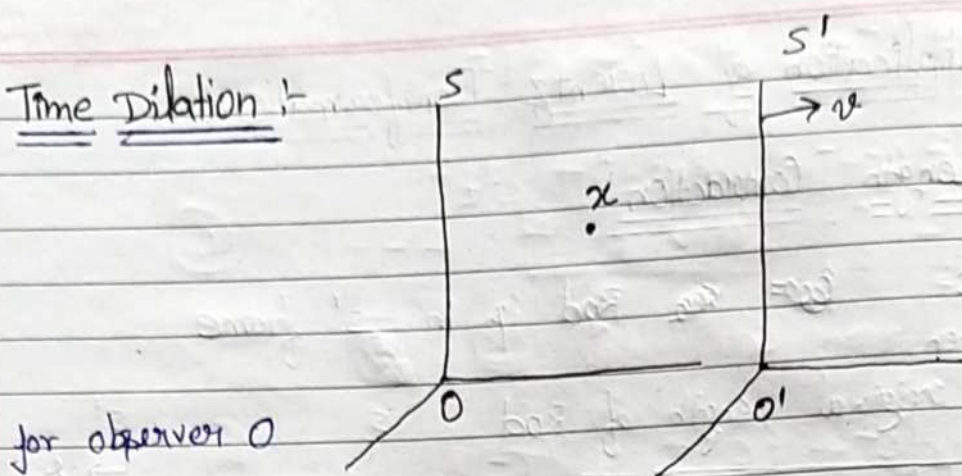 S'
Time Dilation :-
S
→ v
x
O
O'
for observer O